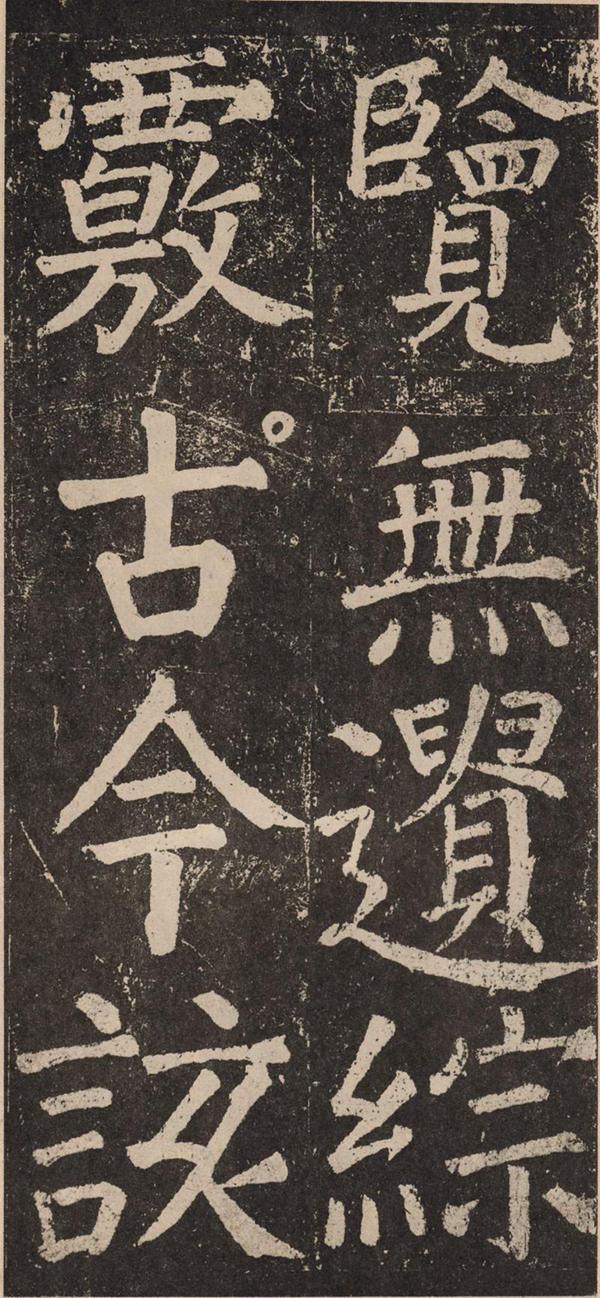 覽無遺綜
覈。古今該